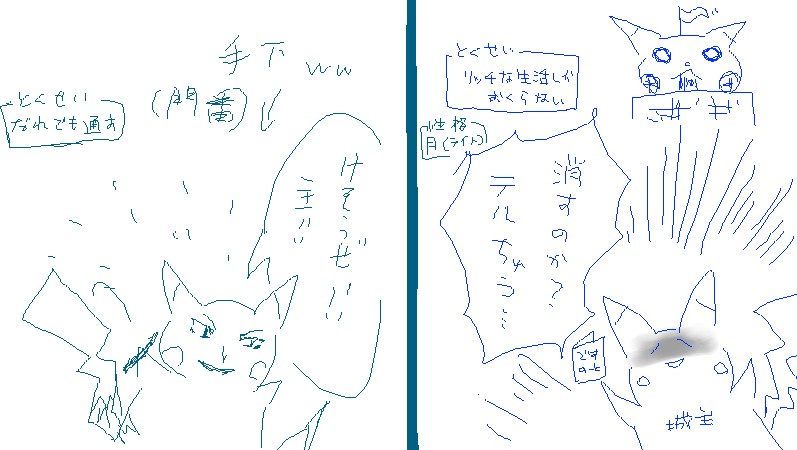 手下 ww
(門番)
とくせい
だれでも通す
けそうぜ!!
王!!
とくせい
リッチな生活しか
おくらない
性格
月(ライト)
消すのか?
テルちゅう…
ですのーと
城主